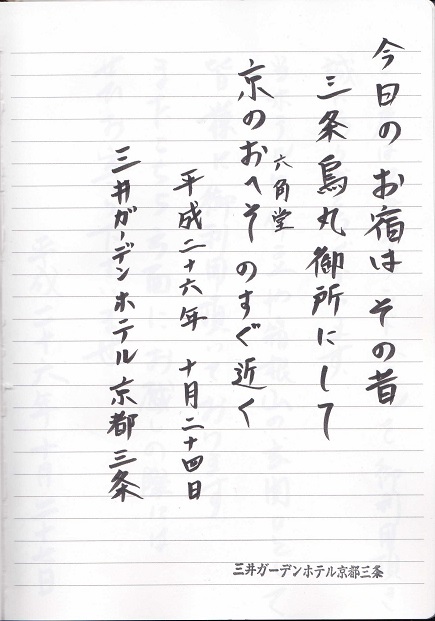 今日のお宿は その昔
三条烏丸御所にして
六角堂
京のおへそのすぐ近く
平成二十六年 十月二十四日
三井ガーデンホテル京都三条
三井ガーデンホテル京都三条